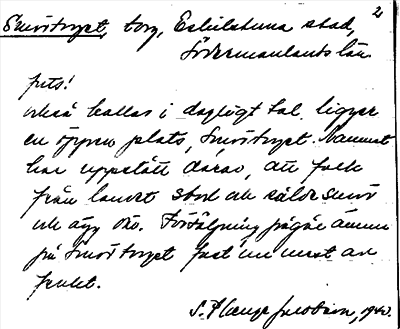 2
Smörtorget, torg, Eskilstuna stad,
Södermanlands län
Juts!
också kallas i dagligt tal, ligger
en öppen plats, Smörtorget. Namnet
har uppstått därav, att folk
från landet stod och sålde smör
och ägg o.s.v. Försäljning pågår ännu
på Smörtorget fast nu mest av
frukt.
S. Jacobson, 1940.